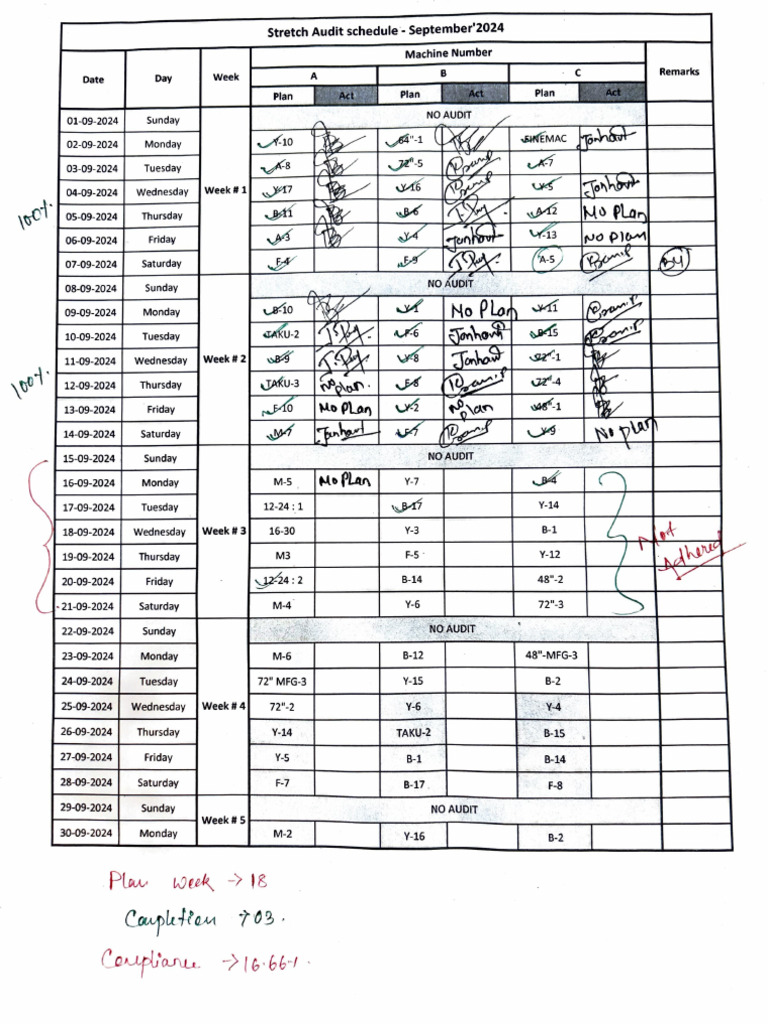 Stretch Audit schedule - September'2024
Date Day Week Machine Number Remarks
A B C
Plan Act Plan Act Plan Act
01-09-2024 Sunday NO AUDIT
02-09-2024 Monday Y-10 64"-1 SINEMAC Janhavi
03-09-2024 Tuesday A-8 72"-5 A-7
04-09-2024 Wednesday Week # 1 Y-17 Y-16 Y-5 Janhavi
100% 05-09-2024 Thursday B-11 B-6 A-12 No Plan
06-09-2024 Friday A-3 Y-4 Janhavi Y-13 No Plan
07-09-2024 Saturday F-4 F-9 A-5 B4
08-09-2024 Sunday NO AUDIT
09-09-2024 Monday B-10 Y-1 No Plan Y-11
10-09-2024 Tuesday TAKU-2 F-6 Janhavi B-15
100% 11-09-2024 Wednesday Week # 2 B-9 Y-8 Janhavi 72"-1
12-09-2024 Thursday TAKU-3 No plan. F-8 72"-4
13-09-2024 Friday F-10 No Plan Y-2 No plan 48"-1
14-09-2024 Saturday M-7 Janhavi F-7 Y-9 No plan
15-09-2024 Sunday NO AUDIT
16-09-2024 Monday M-5 No Plan Y-7 B-4
17-09-2024 Tuesday 12-24 : 1 B-17 Y-14
18-09-2024 Wednesday Week # 3 16-30 Y-3 B-1 Not
19-09-2024 Thursday M3 F-5 Y-12 Adhered
20-09-2024 Friday 12-24 : 2 B-14 48"-2
21-09-2024 Saturday M-4 Y-6 72"-3
22-09-2024 Sunday NO AUDIT
23-09-2024 Monday M-6 B-12 48"-MFG-3
24-09-2024 Tuesday 72" MFG-3 Y-15 B-2
25-09-2024 Wednesday Week # 4 72"-2 Y-6 Y-4
26-09-2024 Thursday Y-14 TAKU-2 B-15
27-09-2024 Friday Y-5 B-1 B-14
28-09-2024 Saturday F-7 B-17 F-8
29-09-2024 Sunday Week # 5 NO AUDIT
30-09-2024 Monday M-2 Y-16 B-2
Plan week → 18
Completion → 03.
Compliance → 16.66%.